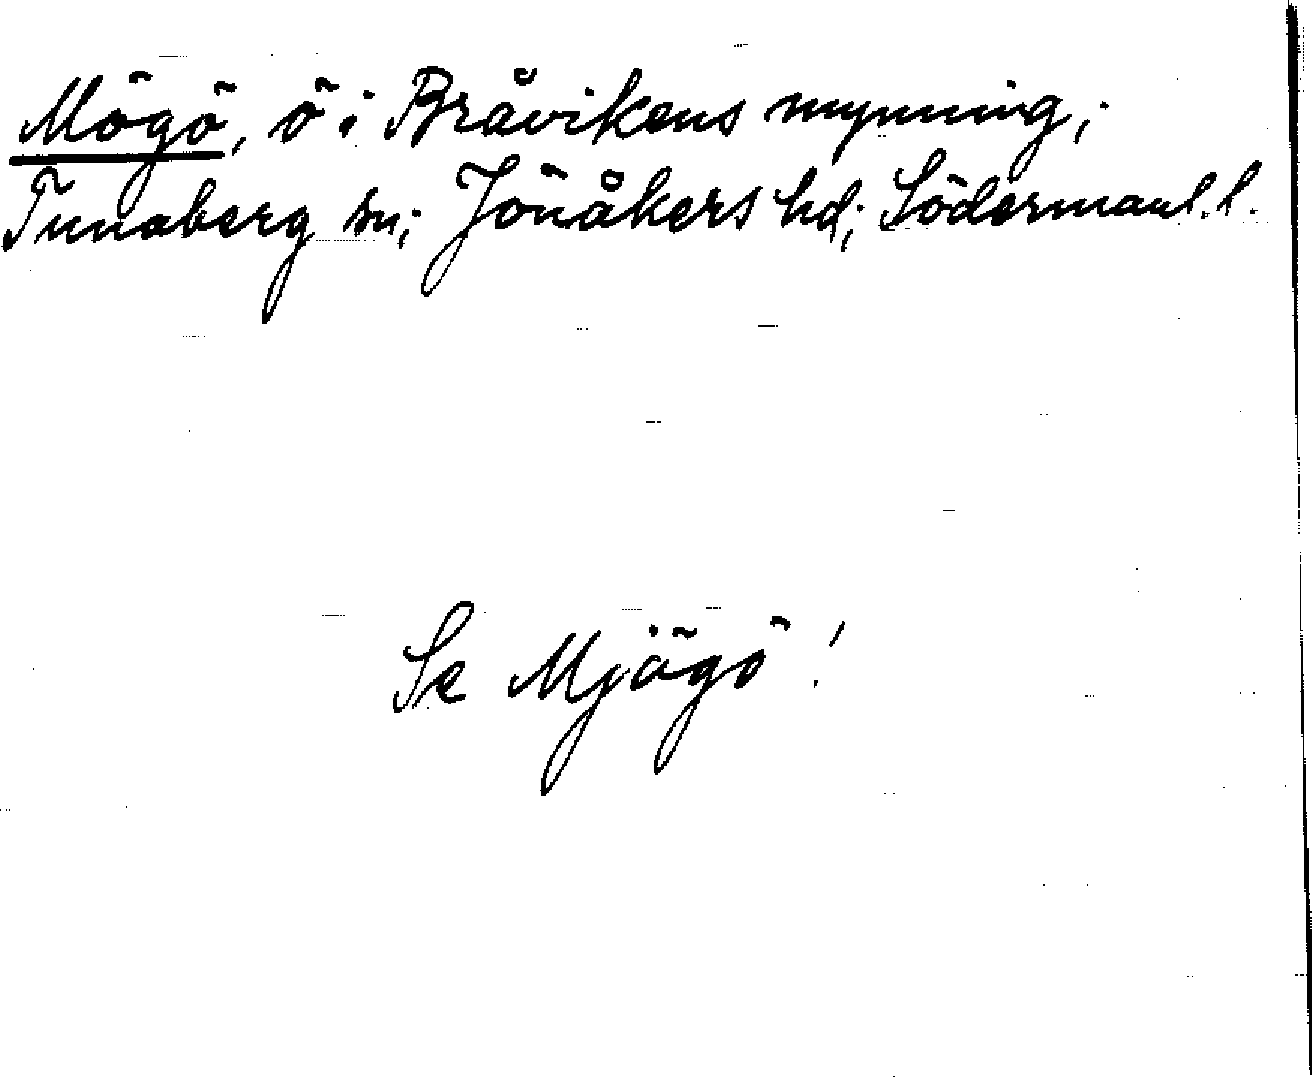 Mögö, ö i Bråvikens mynning;
Tunaberg sn; Jönåkers hd; Södermanl. l.
Se Mjögö!